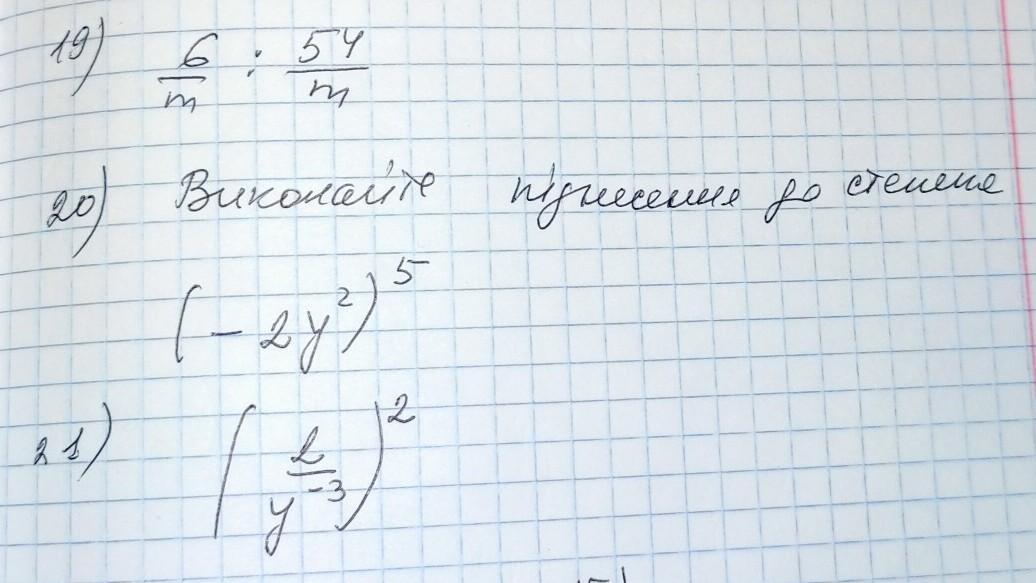 19) 6/m : 54/m
20) Виконайте піднесення до степеня
(-2y²)⁵
21) (2/y⁻³)²